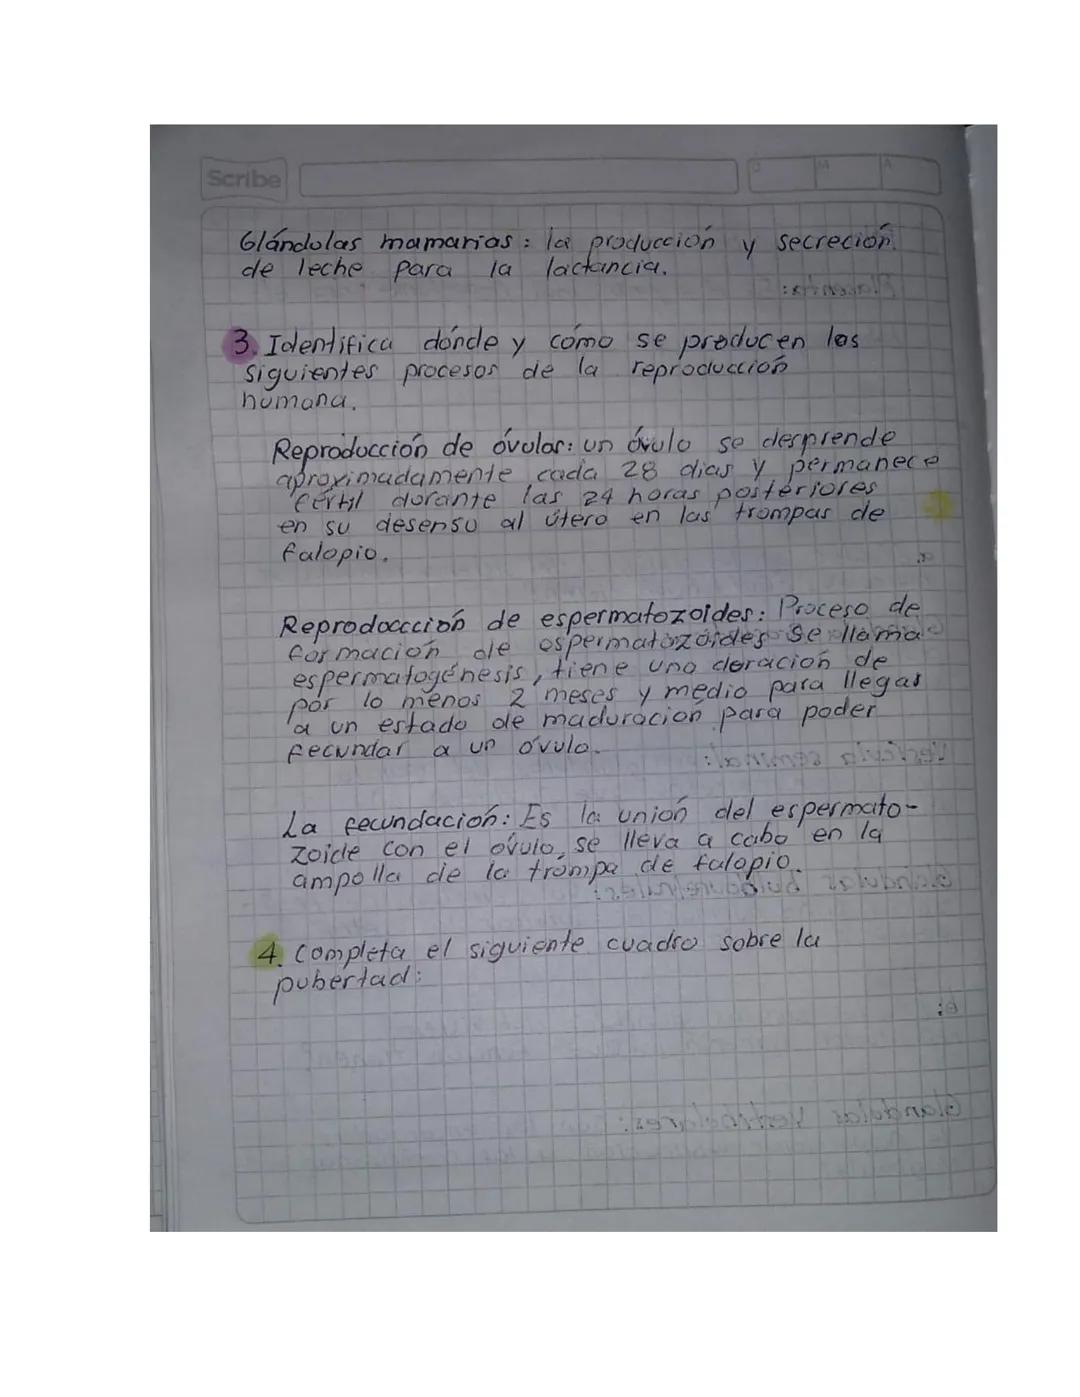 Scribe
D M A
Glándulas mamarias: la producción y secreción
de leche para la lactancia.
3. Identifica dónde y cómo se producen los
siguientes procesos de la reproducción
humana.
Reproducción de óvulos: un óvulo se desprende
aproximadamente cada 28 dias y permanece
fértil durante las 24 horas posteriores
en su desenso al útero en las trompas de
falopio.
Reprodoccción de espermatozoides: Proceso de
formación de espermatozoides se llama
espermatogénesis, tiene una doración de
por lo menos 2 meses y medio para llegar
a un estado de maduración para poder
fecundar a un óvulo.
La fecundación: Es la unión del espermato-
zoide con el óvulo, se lleva a cabo en la
ampolla de la trompa de falopio.
4. Completa el siguiente cuadro sobre la
pubertad: